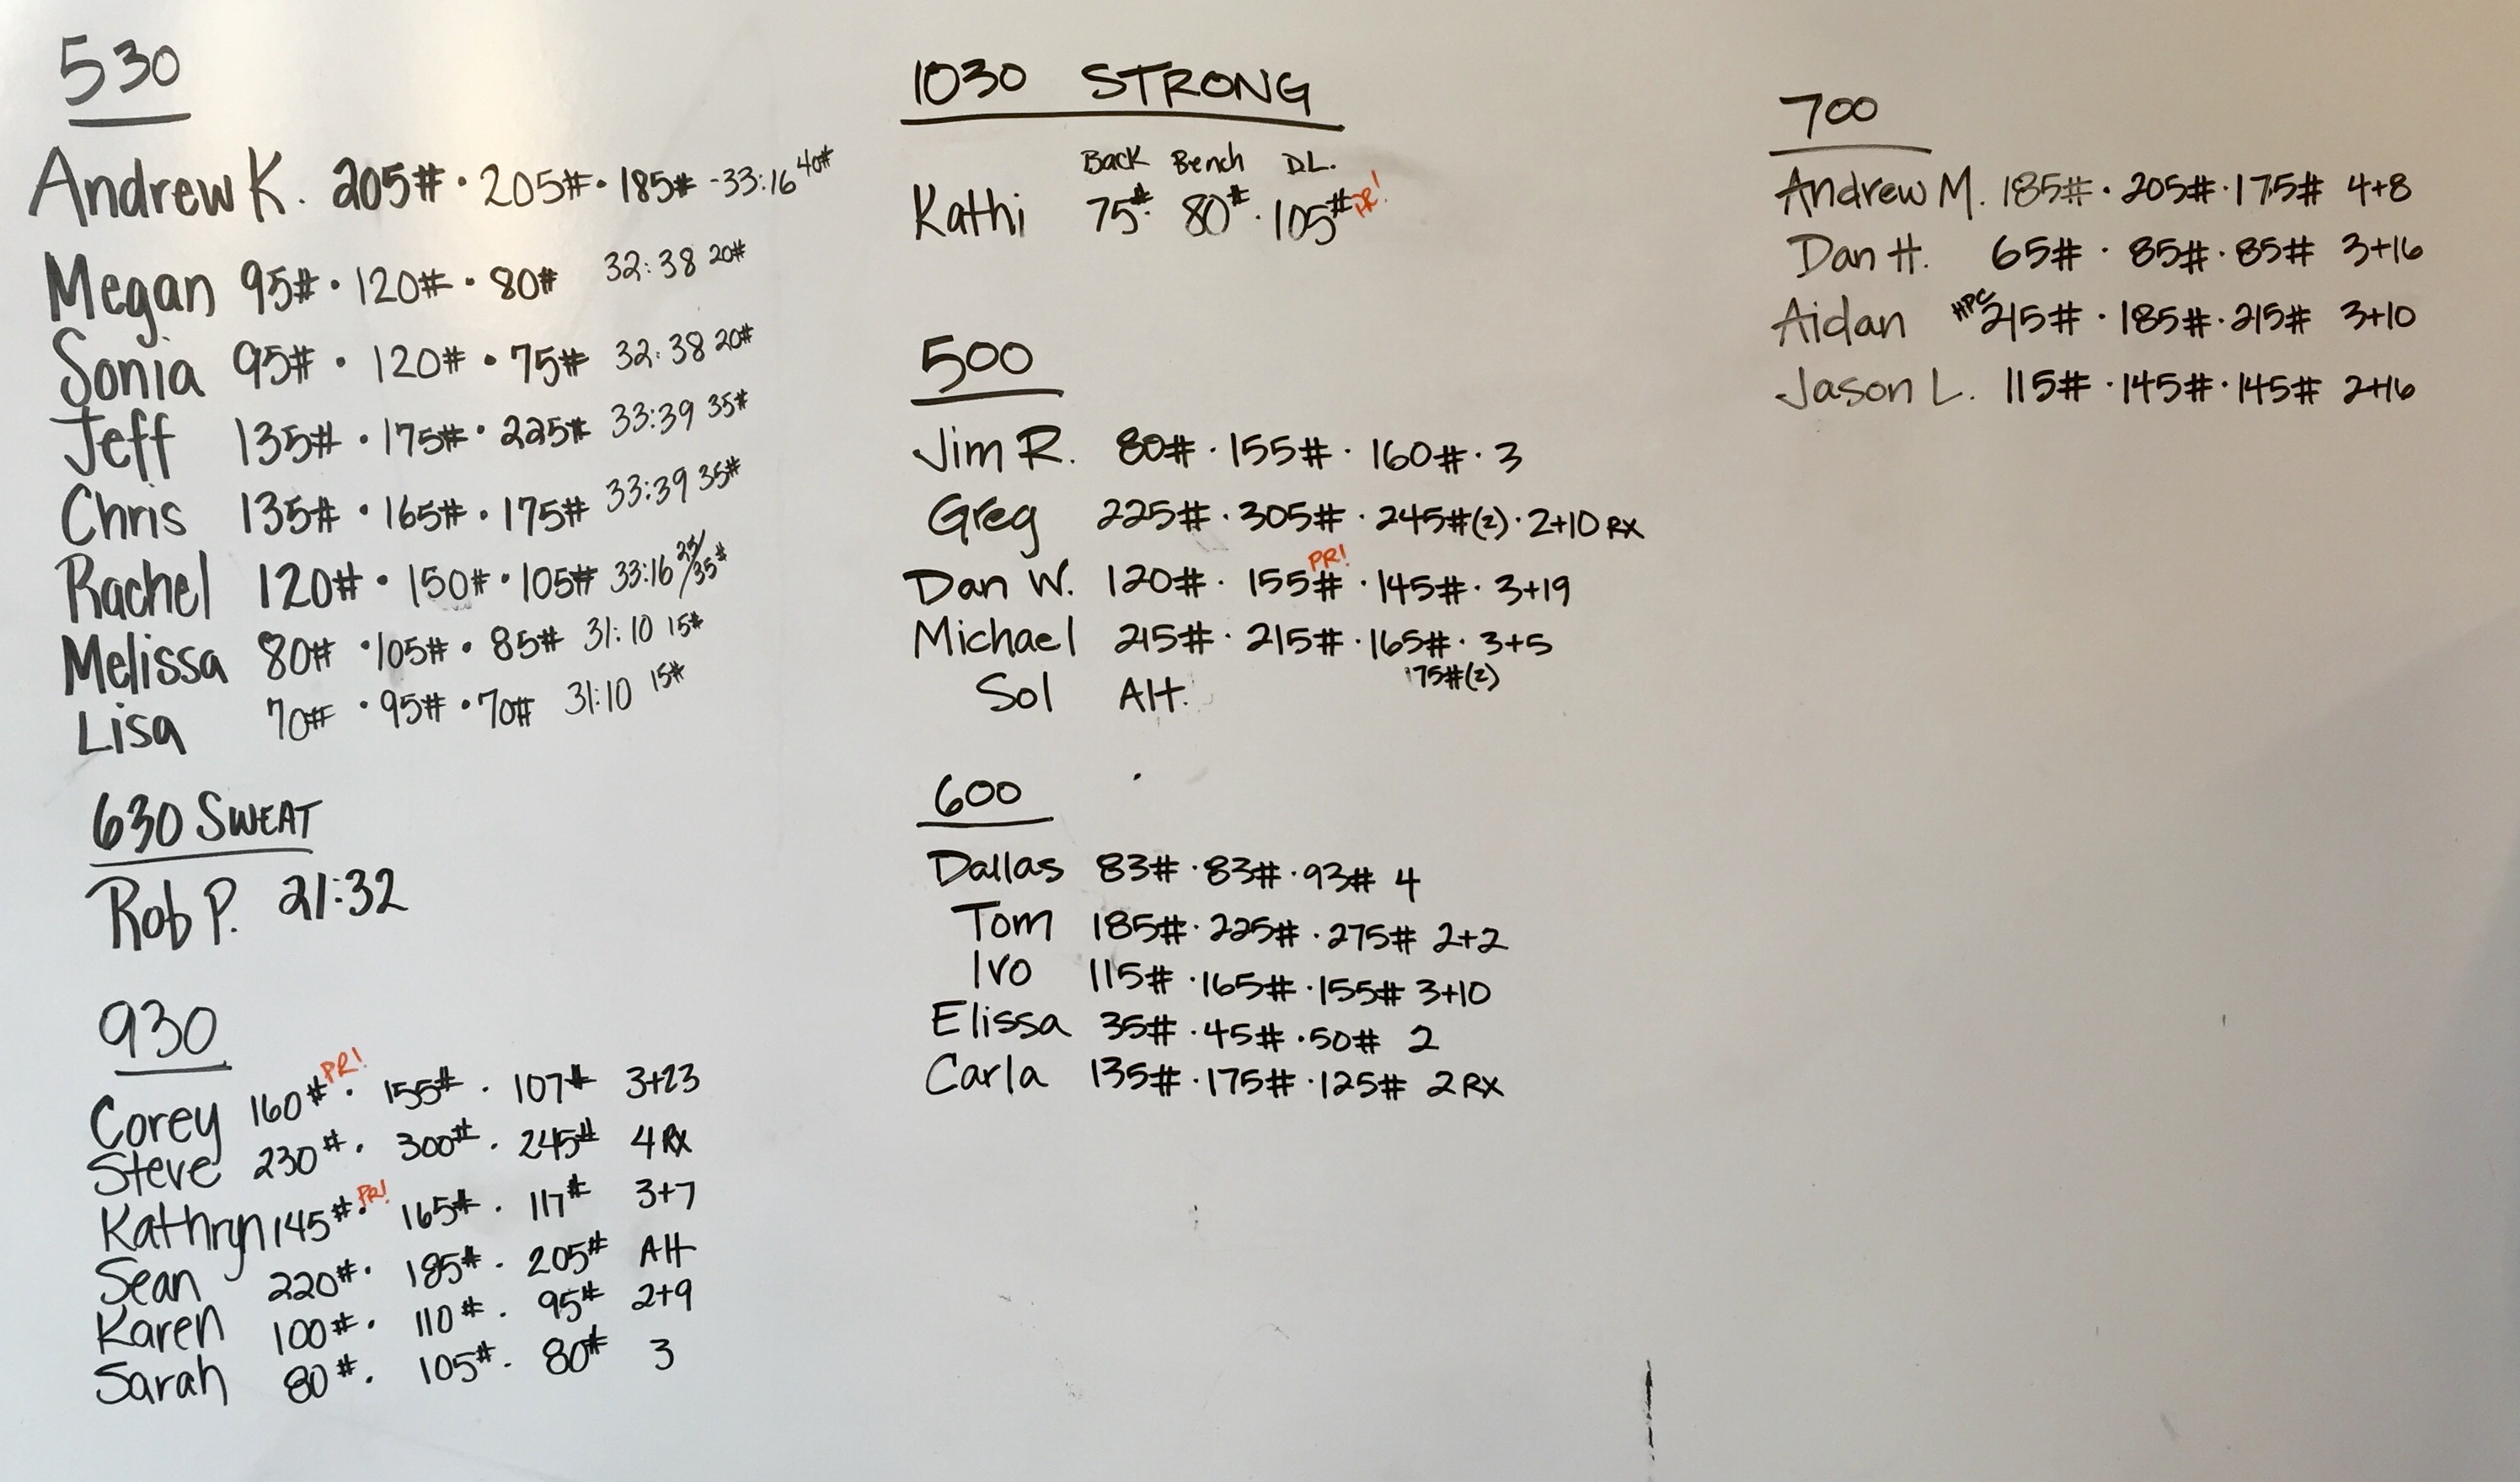 530
Andrew K. 205# · 205# · 185# - 33:16 40#
Megan 95# · 120# · 80# 32:38 20#
Sonia 95# · 120# · 75# 32:38 20#
Jeff 135# · 175# · 225# 33:39 35#
Chris 135# · 165# · 175# 33:39 35#
Rachel 120# · 150# · 105# 33:16 25/35#
Melissa 80# · 105# · 85# 31:10 15#
Lisa 70# · 95# · 70# 31:10 15#
630 SWEAT
Rob P. 21:32
930
Corey 160# PR! · 155# · 107# 3+23
Steve 230# · 300# · 245# 4 RX
Kathryn 145# · PR! 165# · 117# 3+7
Sean 220# · 185# · 205# Alt
Karen 100# · 110# · 95# 2+9
Sarah 80# · 105# · 80# 3
1030 STRONG
Back Bench D.L.
Kathi 75# · 80# · 105# PR!
500
Jim R. 80# · 155# · 160# · 3
Greg 225# · 305# · 245#(2) · 2+10 RX
PR!
Dan W. 120# · 155# · 145# · 3+19
Michael 215# · 215# · 165# · 3+5
175#(2)
Sol Alt.
600
Dallas 83# · 83# · 93# 4
Tom 185# · 225# · 275# 2+2
Ivo 115# · 165# · 155# 3+10
Elissa 35# · 45# · 50# 2
Carla 135# · 175# · 125# 2 RX
700
Andrew M. 185# · 205# · 175# 4+8
Dan H. 65# · 85# · 85# 3+16
Aidan HPC 215# · 185# · 215# 3+10
Jason L. 115# · 145# · 145# 2+16